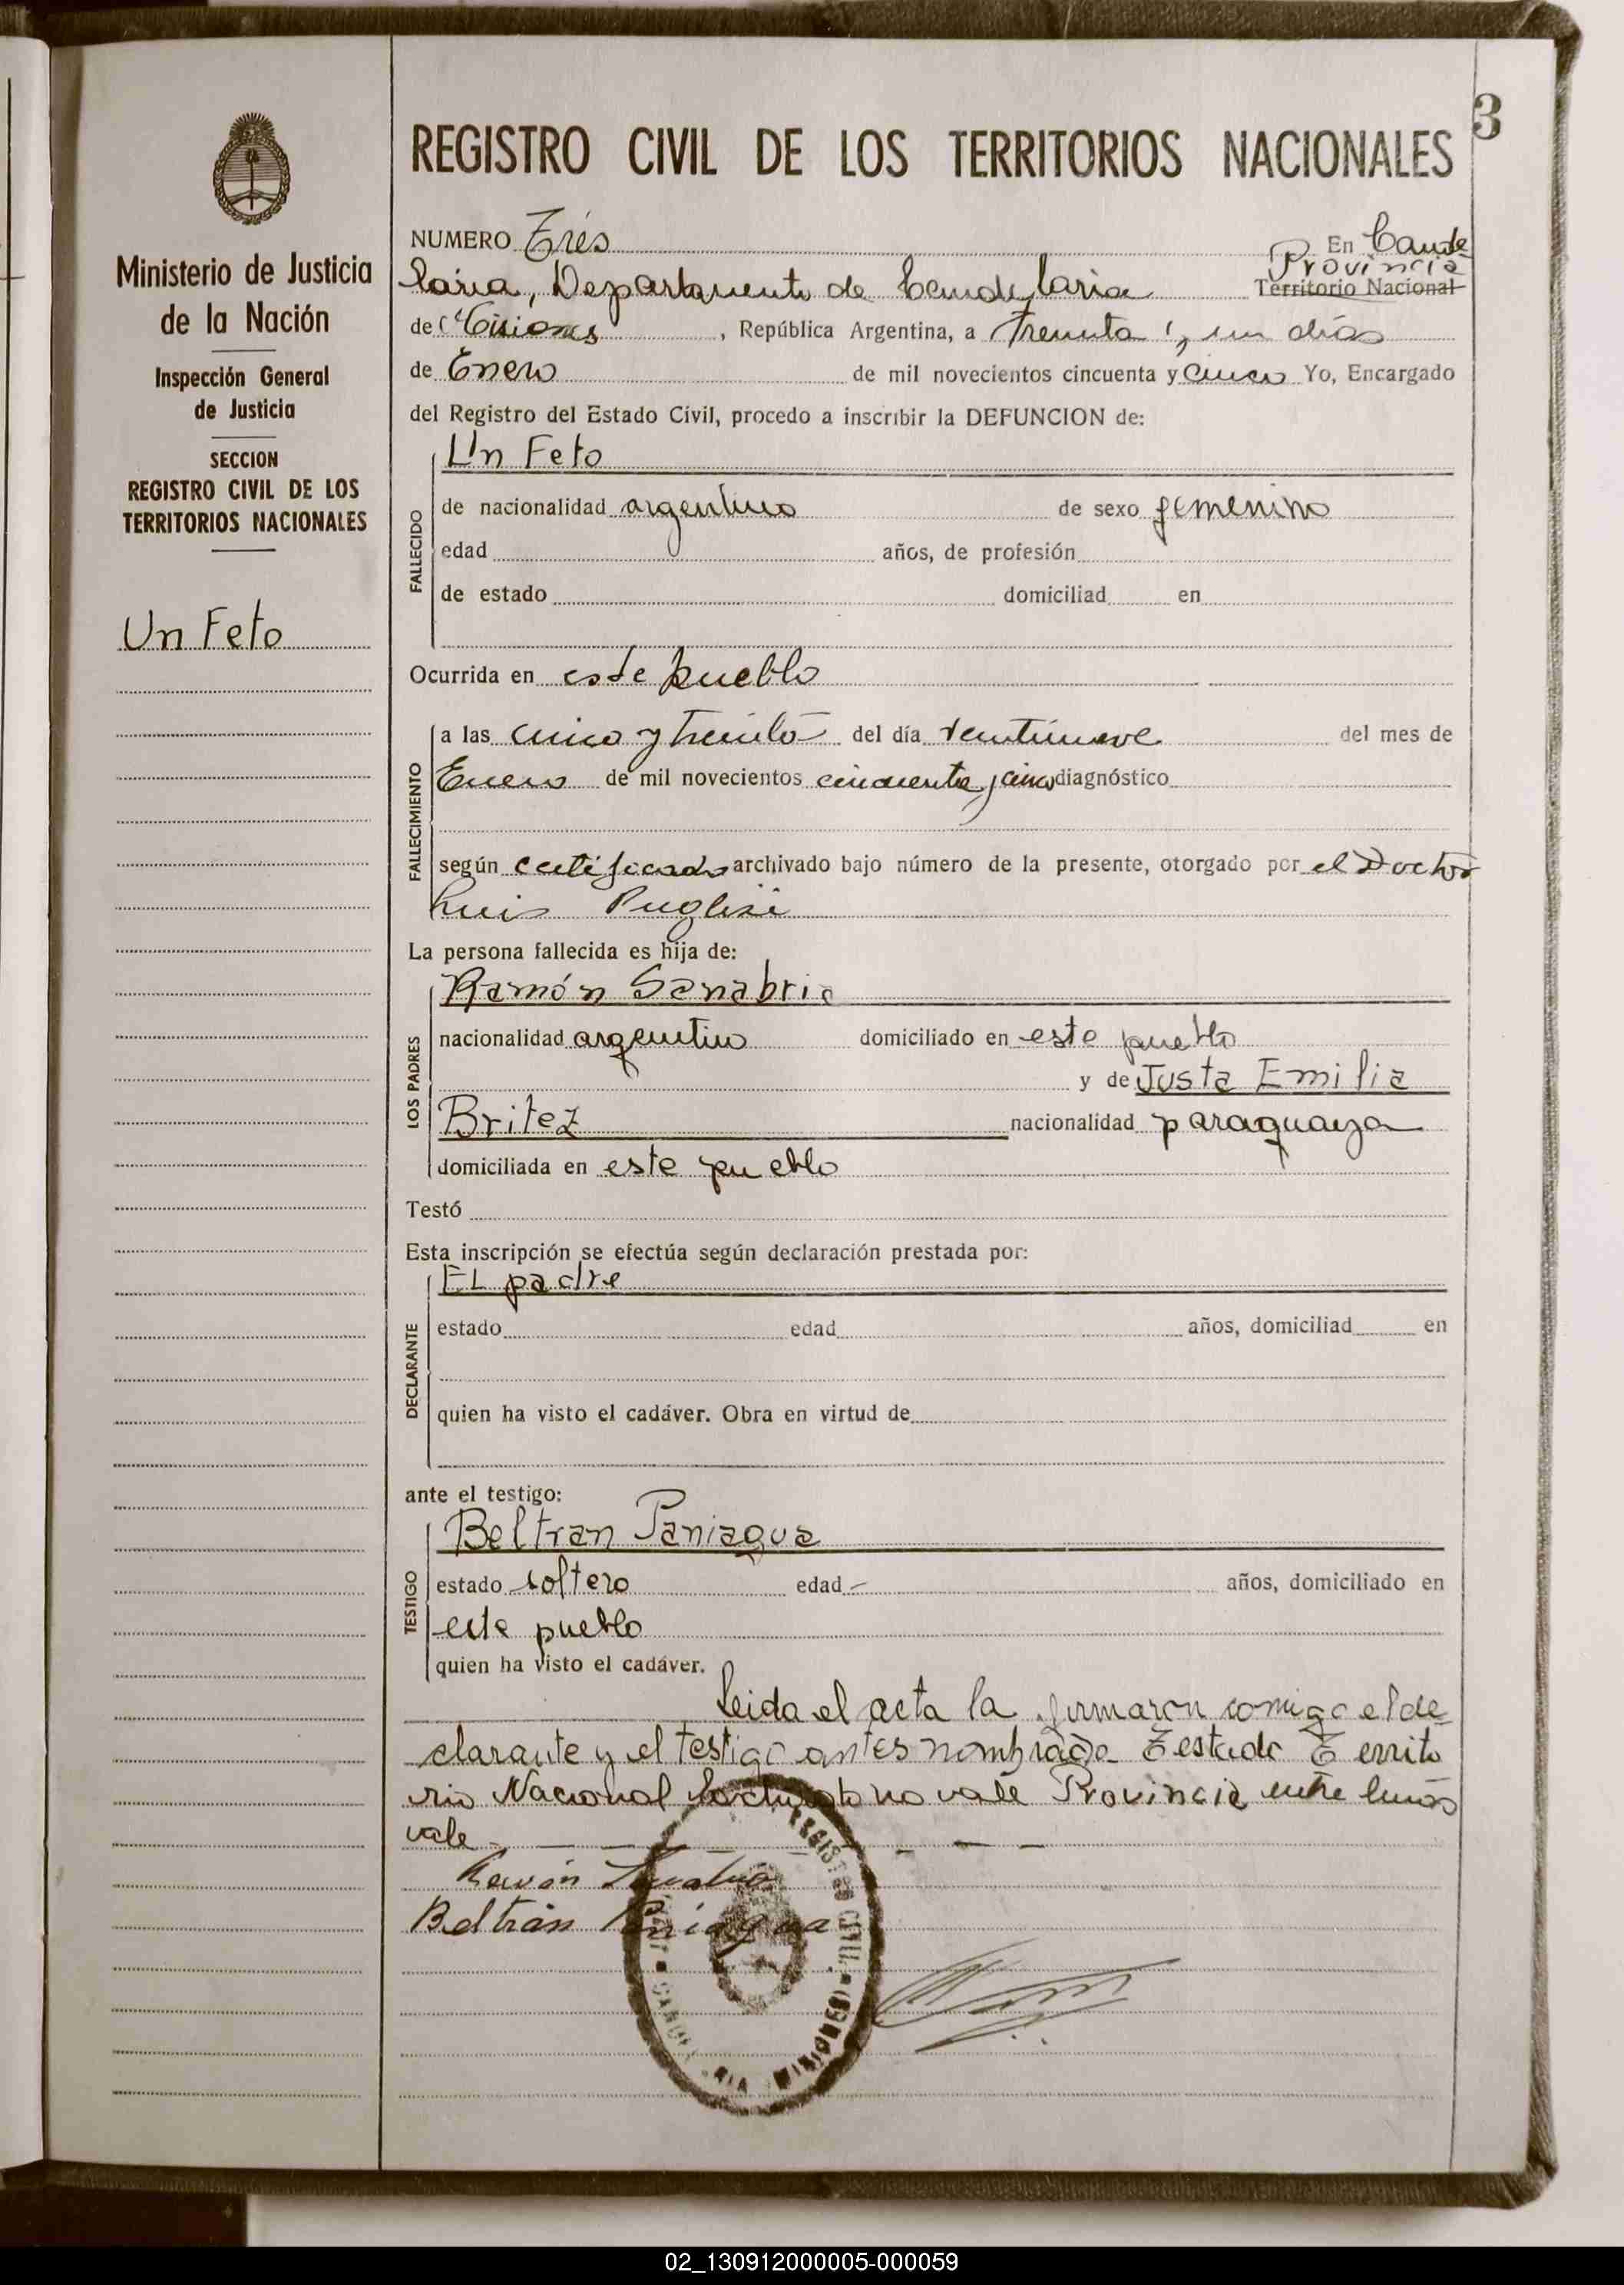 3
REGISTRO CIVIL DE LOS TERRITORIOS NACIONALES
Ministerio de Justicia
de la Nación
Inspección General
de Justicia
SECCION
REGISTRO CIVIL DE LOS
TERRITORIOS NACIONALES
Un Feto
NUMERO Tres En Cande
Provincia
laria, Departamento de Candelaria Territorio Nacional
de Misiones, República Argentina, a treinta y un días
de Enero de mil novecientos cincuenta y cinco Yo, Encargado
del Registro del Estado Civil, procedo a inscribir la DEFUNCION de:
Un Feto
FALLECIDO
de nacionalidad argentino de sexo femenino
edad años, de profesión
de estado domiciliad en
Ocurrida en este pueblo
FALLECIMIENTO
a las cinco y treinta del día veintinueve del mes de
Enero de mil novecientos cincuenta y cinco diagnóstico
según certificado archivado bajo número de la presente, otorgado por el Doctor
Luis Puglisi
La persona fallecida es hija de:
LOS PADRES
Ramón Sanabria
nacionalidad argentino domiciliado en este pueblo
y de Justa Emilia
Britez nacionalidad paraguaya
domiciliada en este pueblo
Testó
Esta inscripción se efectúa según declaración prestada por:
DECLARANTE
EL padre
estado edad años, domiciliad en
quien ha visto el cadáver. Obra en virtud de
ante el testigo:
TESTIGO
Beltran Paniagua
estado soltero edad - años, domiciliado en
este pueblo
quien ha visto el cadáver.
Leida el acta la firmaron comigo el de-
clarante y el testigo antes nombrado Testado Territo
rio Nacional no vale Provincia entre lineas
vale
Ramón Sanabria
Beltrán Paniagua
REGISTRO CIVIL
MISIONES
02_130912000005-000059